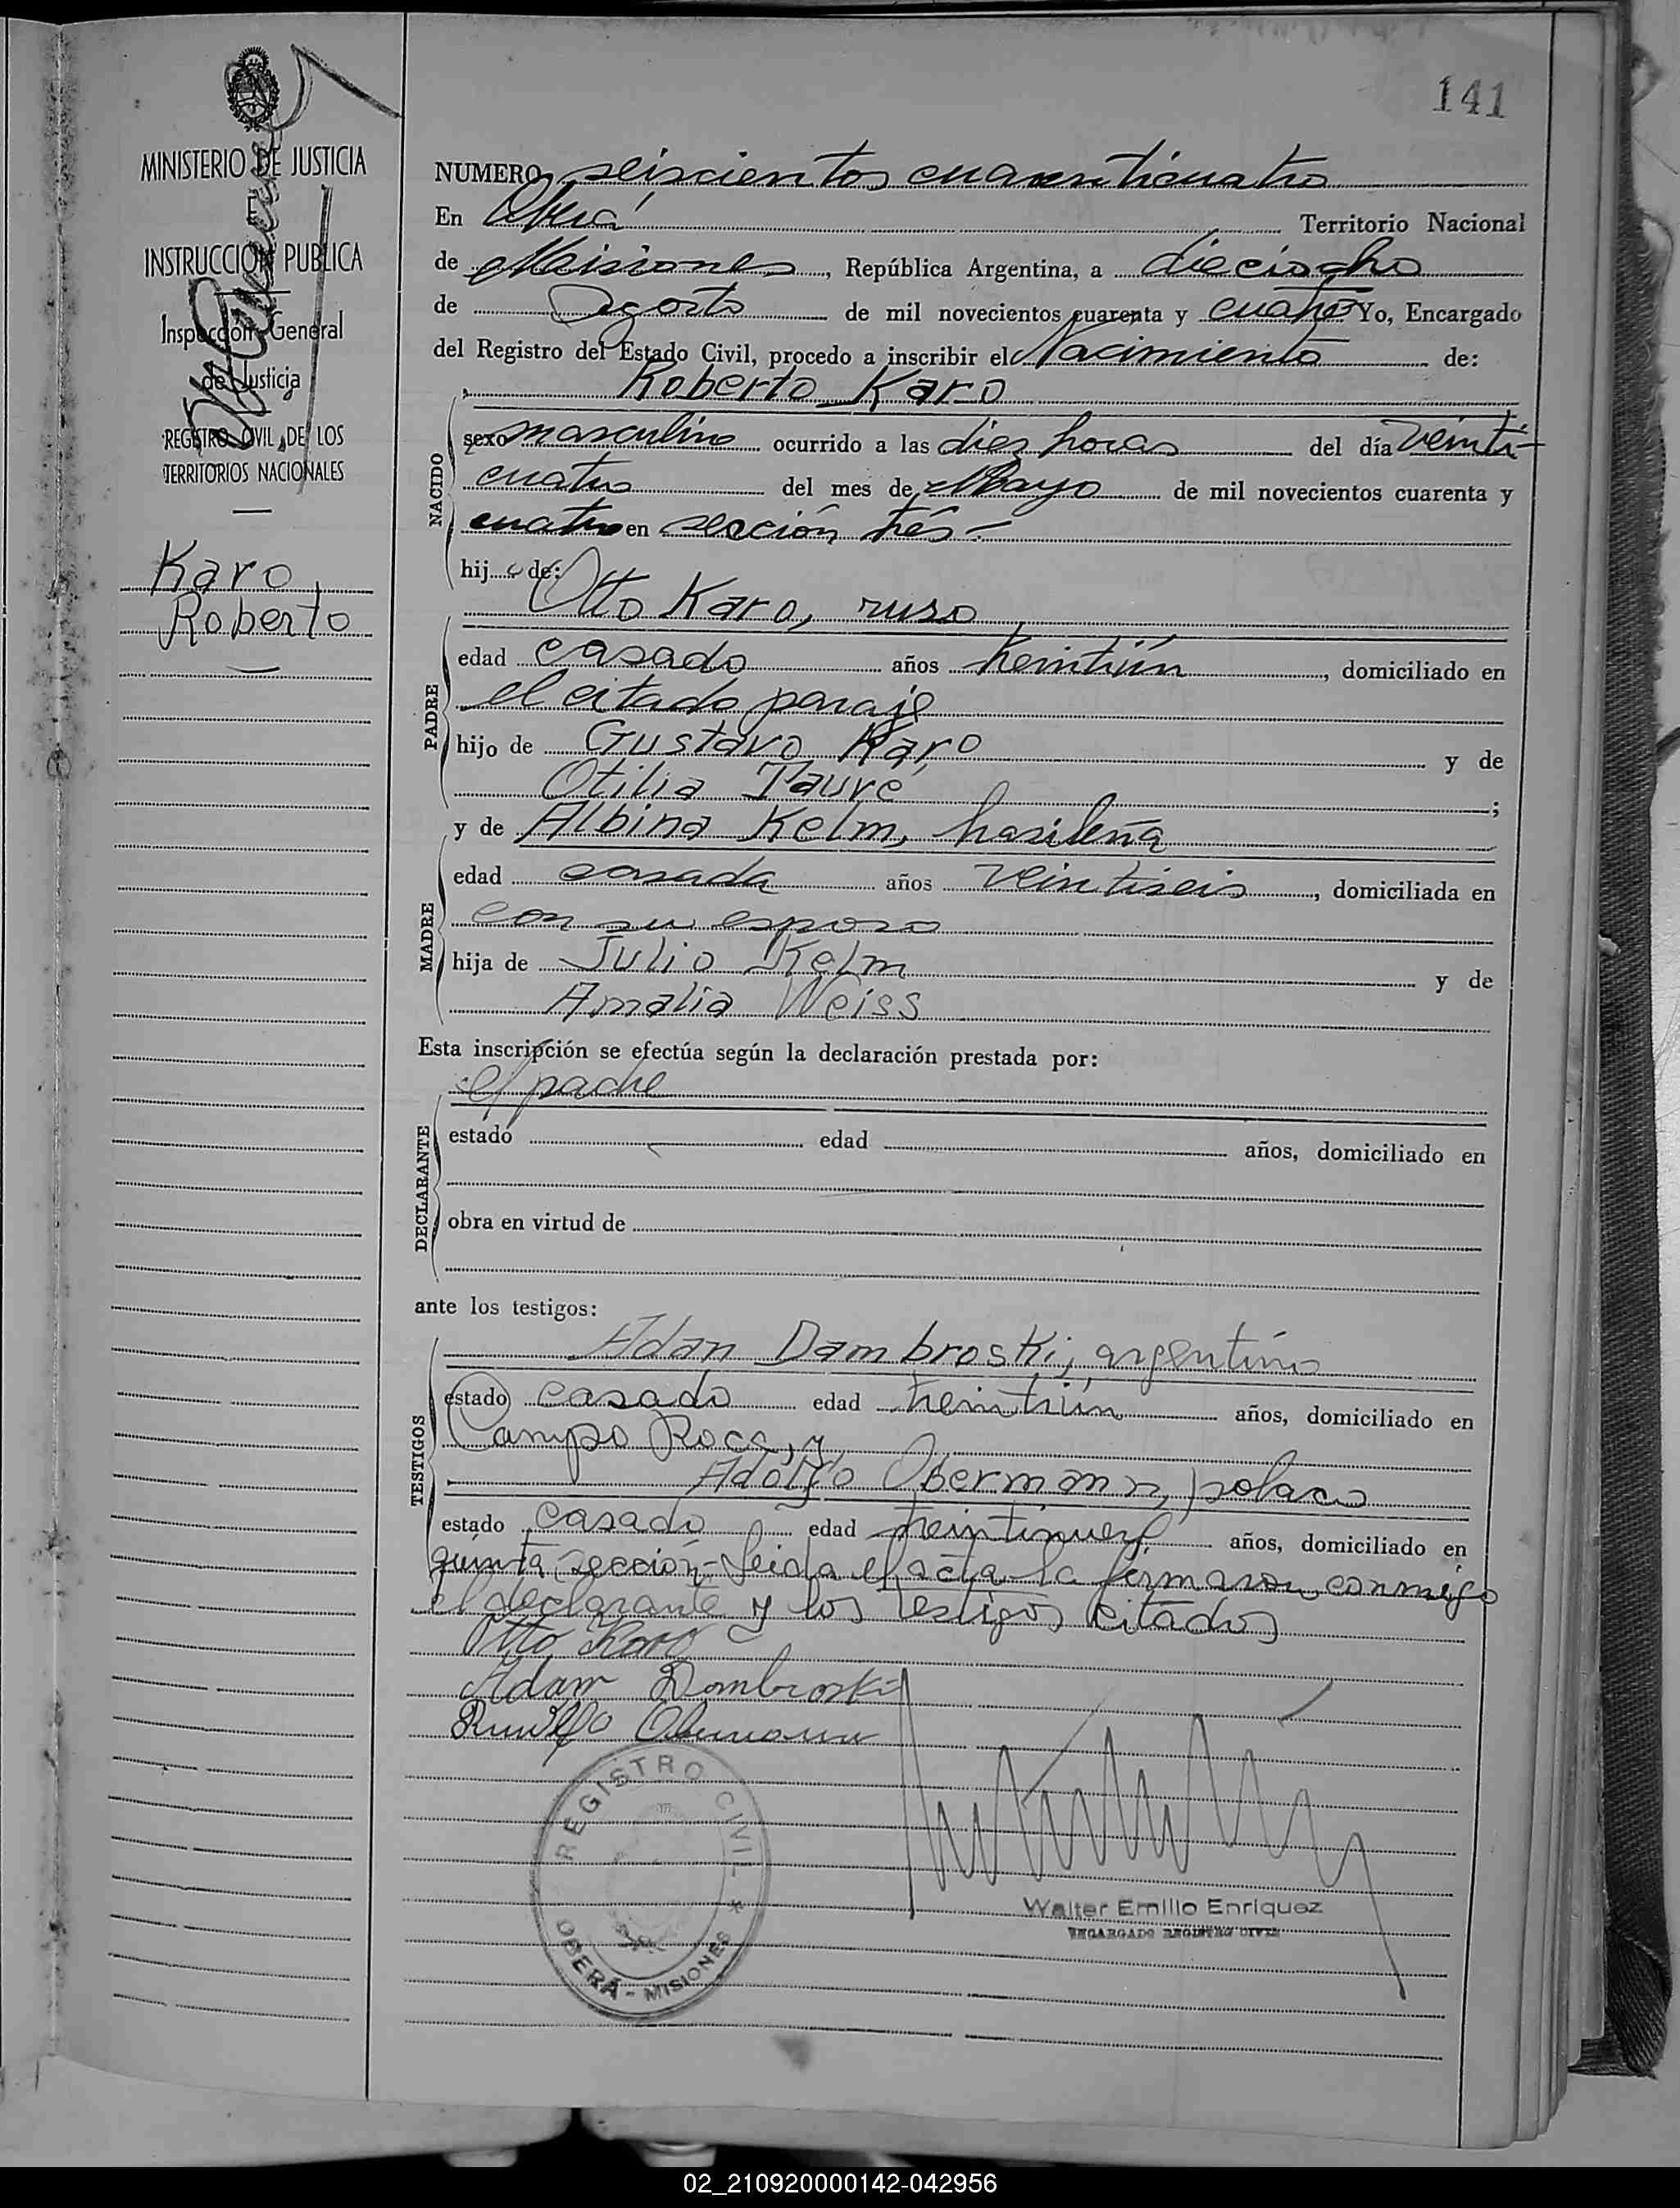 141
MINISTERIO DE JUSTICIA
E
INSTRUCCION PUBLICA
Inspección General
de Justicia
REGISTRO CIVIL DE LOS
TERRITORIOS NACIONALES
Karo
Roberto
NUMERO seiscientos cuarenticuatro
En Oberá Territorio Nacional
de Misiones, República Argentina, a dieciocho
de Agosto de mil novecientos cuarenta y cuatro Yo, Encargado
del Registro del Estado Civil, procedo a inscribir el Nacimiento de:
Roberto Karo
NACIDO
sexo masculino ocurrido a las diez horas del día veinti-
cuatro del mes de Mayo de mil novecientos cuarenta y
cuatro en sección tres.-
hijo de:
Otto Karo, ruso
PADRE
edad casado años treintiún, domiciliado en
el citado paraje
hijo de Gustavo Karo y de
Otilia ;
y de Albina Kelm, brasileña
MADRE
edad casada años veintiseis, domiciliada en
con su esposo
hija de Julio Kelm y de
Amalia Weiss
Esta inscripción se efectúa según la declaración prestada por:
el padre
DECLARANTE
estado edad años, domiciliado en
obra en virtud de
ante los testigos:
Adan Dambroski, argentino
TESTIGOS
estado casado edad treintiún años, domiciliado en
Campo Roca, y
Adolfo Obermann, polaco
estado casado edad treintinueve años, domiciliado en
quinta sección- Leida el acta la firmaron conmigo
el declarante y los testigos citados
Otto Karo
Adam Dombroski
REGISTRO CIVIL
OBERÁ - MISIONES
Walter Emilio Enriquez
ENCARGADO REGISTRO CIVIL
02_210920000142-042956